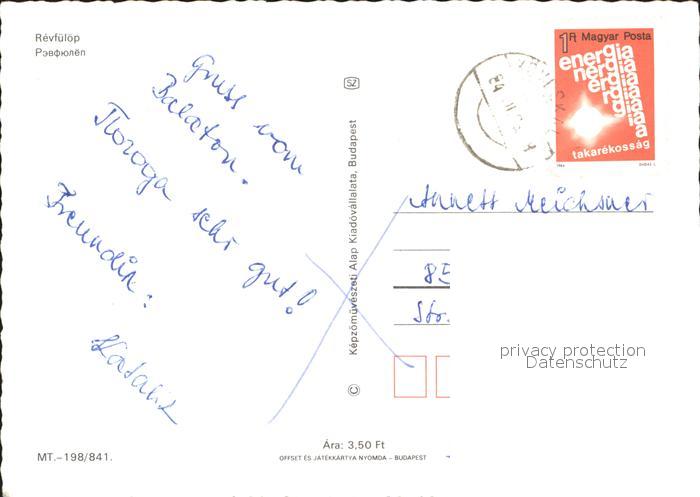 Révfülöp
Рэвфюлёп
Gruss vom
Balaton.
Погода sehr gut!
Freundin:
Katalin
SZ
Képzőművészeti Alap Kiadóvállalata, Budapest
©
1 Ft Magyar Posta
energia
takarékosság
Annett Meichsner
85
Str.
privacy protection
Datenschutz
MT.–198/841.
Ára: 3,50 Ft
OFFSET ÉS JÁTÉKKÁRTYA NYOMDA – BUDAPEST